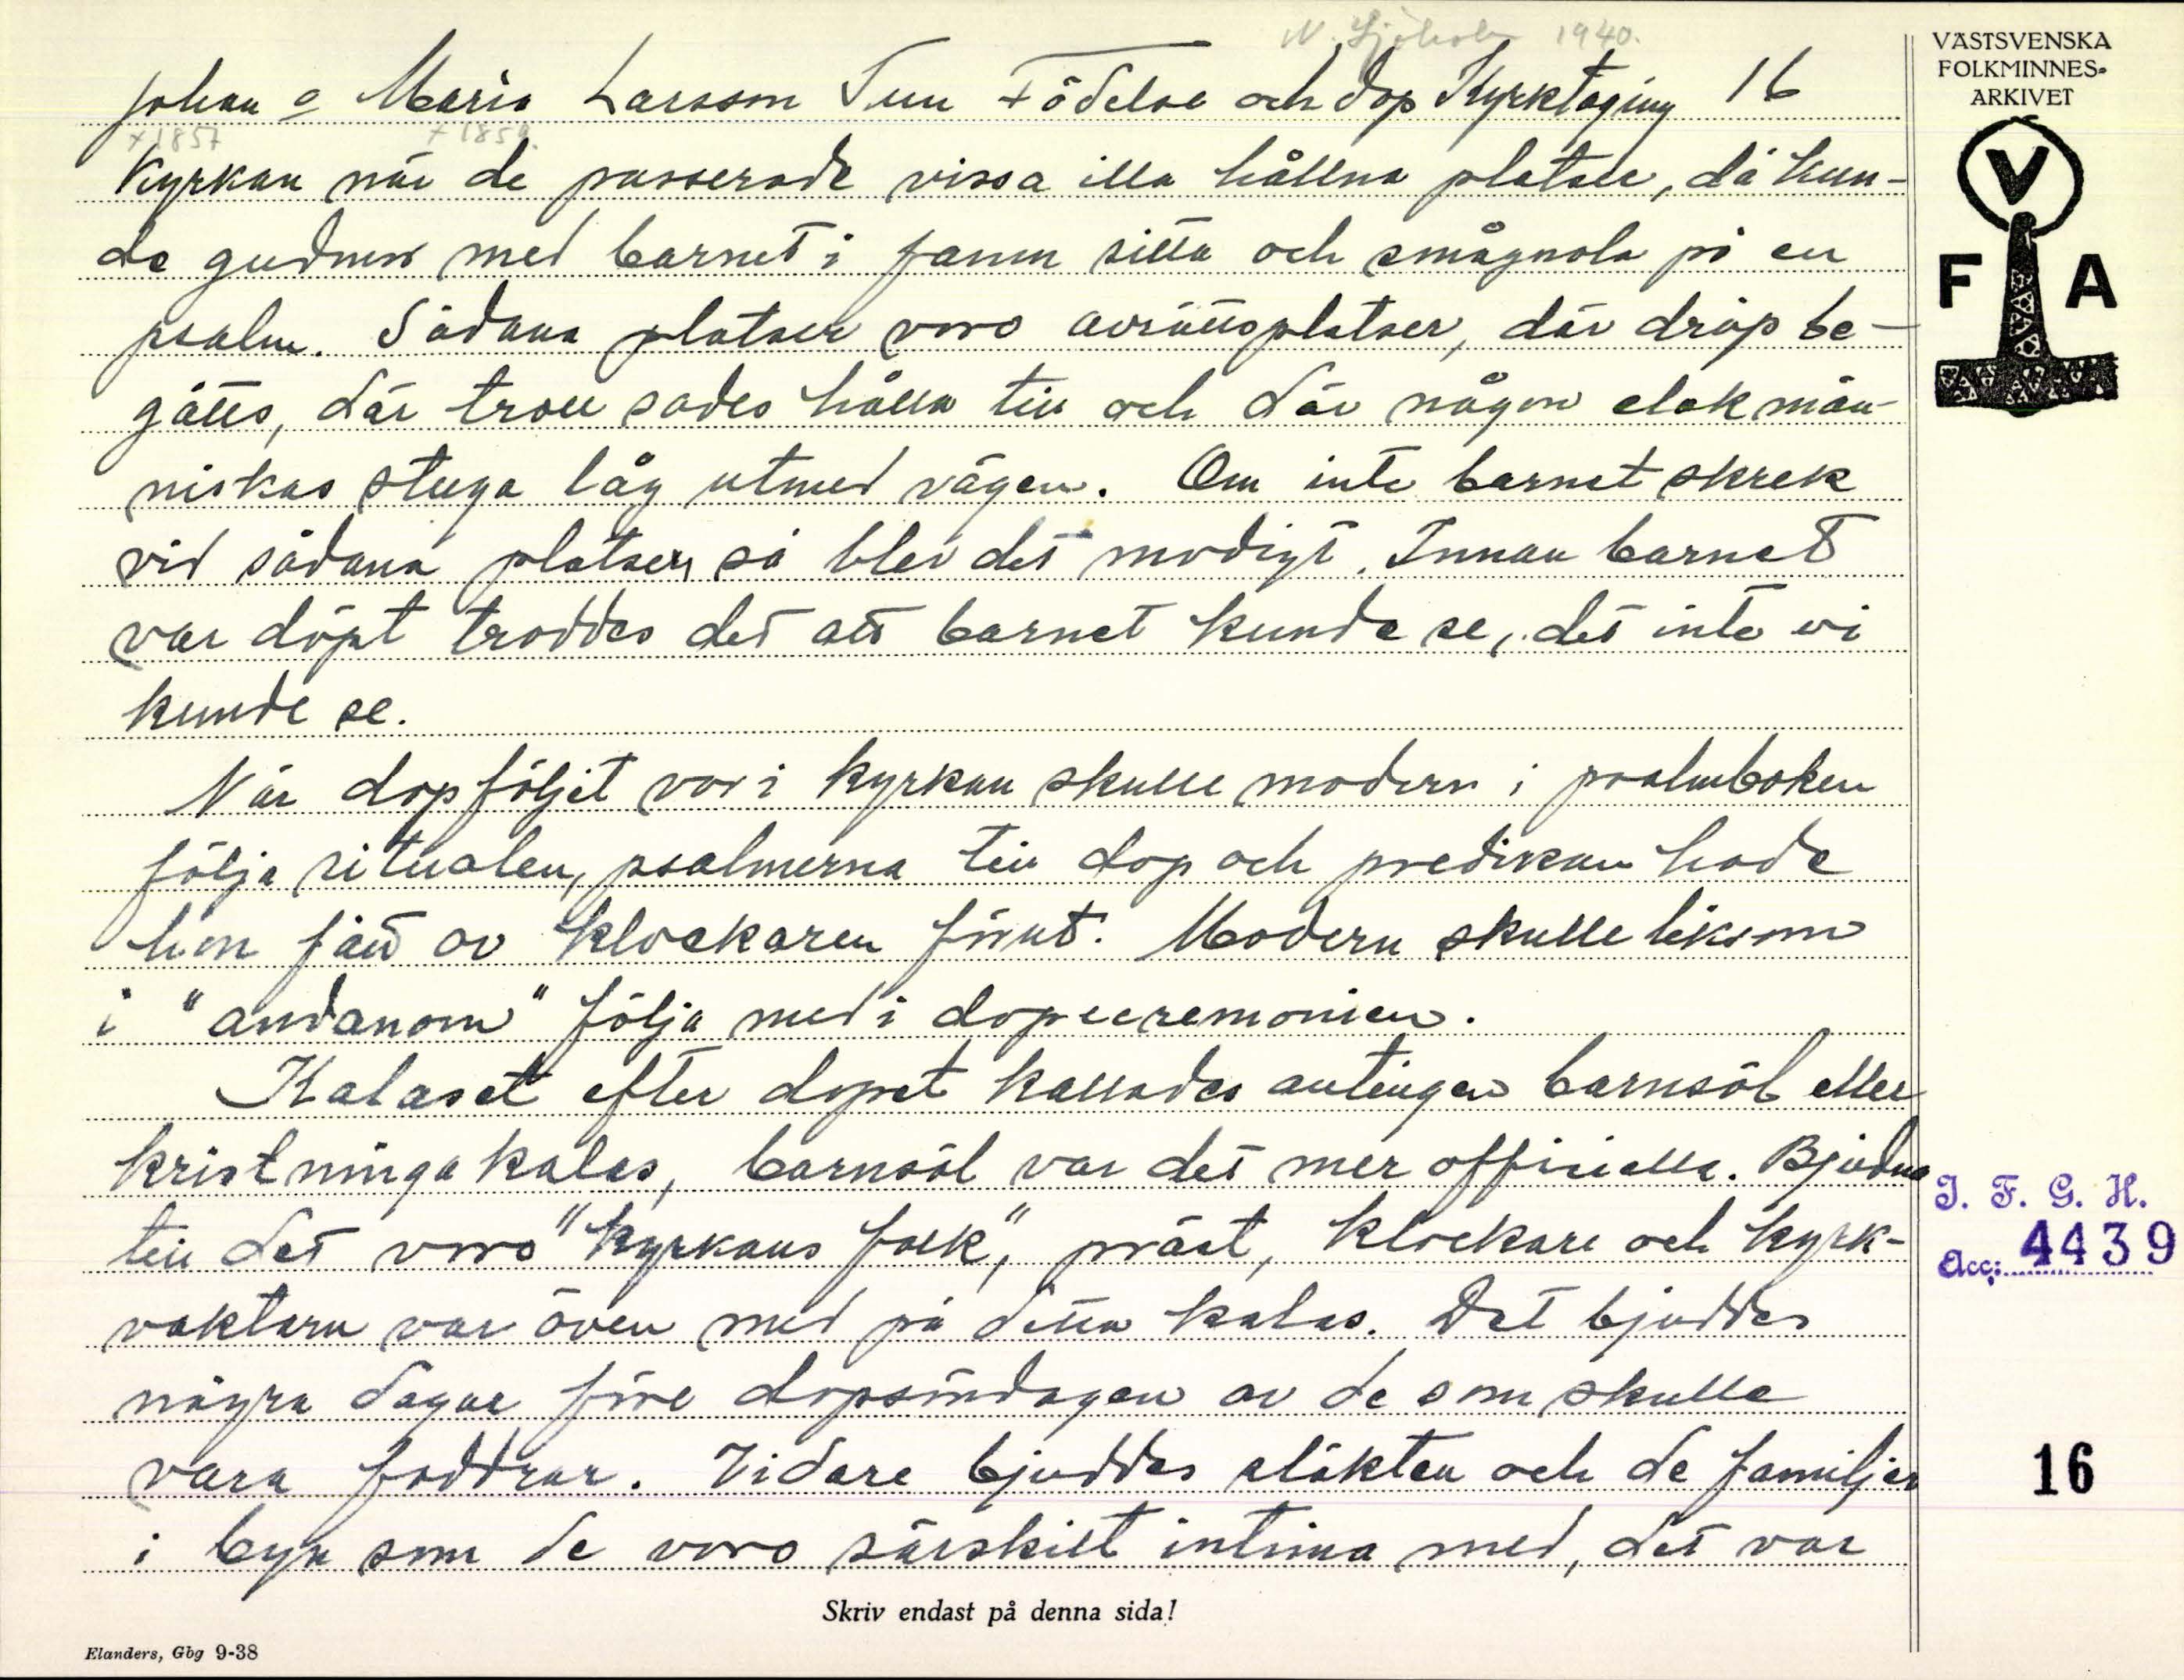 N. Sjöholm 1940.
Johan o Maria Larsson Tun Födelse och dop Kyrktaging 16
+1857 +1859.
Kyrkan när de passerade vissa illa hållna platser, då kun-
de gudmor med barnet i famn sitta och smågnola på en
psalm. Sådana platser voro avrättsplatser, där dråp be-
gåtts, där troll sades hålla till och där någon elak män-
niskas stuga låg utmed vägen. Om inte barnet skrek
vid sådana platser, så blev det modigt. Innan barnet
var döpt troddes det att barnet kunde se, det inte vi
kunde se.
När dopföljet var i kyrkan skulle modern i psalmboken
följa ritualen, psalmerna till dop och predikan hade
hon fått av klockaren förut. Modern skulle liksom
i "andanom" följa med i dopceremonien.
Kalaset efter dopet kallades antingen barnsöl eller
kristningakalas, barnsöl var det mer officiella. Bjudna
till det voro "kyrkans folk", präst, klockare och kyrk-
vaktarn var även med på detta kalas. Det bjuddes
några dagar före dopsöndagen av de som skulle
vara foddrar. Vidare bjuddes släkten och de familjer
i byn som de voro särskilt intima med, det var
Skriv endast på denna sida!
Elanders, Gbg 9-38
VÄSTSVENSKA
FOLKMINNES-
ARKIVET
V
F A
I. F. G. H.
Acc: 4439
16